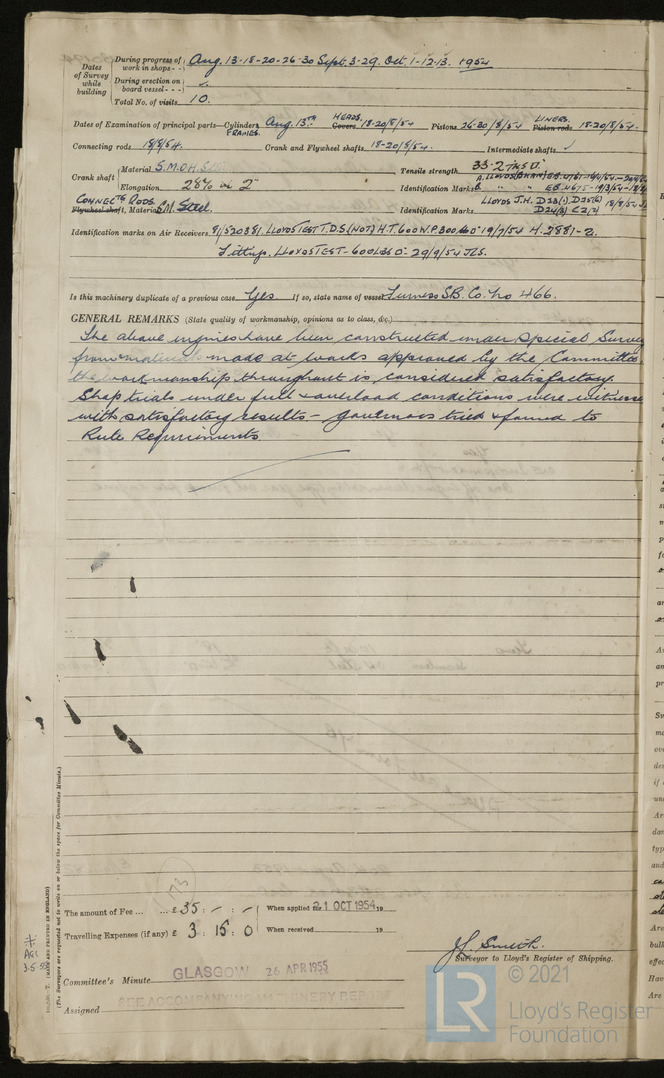 Dates of Survey while building
During progress of work in shops - - Aug. 13-18-20-26-30 Sept. 3-29. Oct. 1-12-13. 1954
During erection on board vessel - - -
Total No. of visits 10.
Dates of Examination of principal parts—Cylinders FRAMES. Aug. 13TH HEADS. Covers 18-20/8/54 Pistons 26-30/8/54 LINERS. Piston rods 18-20/8/54.
Connecting rods 18/8/54. Crank and Flywheel shafts 18-20/8/54. Intermediate shafts
Crank shaft Material S.M.O.H. Tensile strength 33.2 TNS
Elongation 28% in 2" Identification Marks
CONNECTG RODS Flywheel shaft, Material S.M. Steel. Identification Marks LLOYDS J.H. D23(1), D25(6) 18/8/54
D24(3) C2(2)
Identification marks on Air Receivers. LLOYDS TEST T.D.S. (NOT) H.T. 600 W.P. 300 19/7/54 H. 2881-2.
LLOYDS TEST - 600 LBS 29/9/54 JLS.
Is this machinery duplicate of a previous case Yes If so, state name of vessel Furness S.B. Co. No 466.
GENERAL REMARKS (State quality of workmanship, opinions as to class, &c.)
The above engines have been constructed under Special Survey
from materials made at works approved by the Committee
the workmanship throughout is considered satisfactory.
Shop trials under full & overload conditions were
with satisfactory results - governors tried & found to
Rule Requirements
The amount of Fee ... ... £ 35 : - : - When applied for 21 OCT 1954 19
Travelling Expenses (if any) £ 3 : 15 : 0 When received 19
J.L. Smith.
Surveyor to Lloyd's Register of Shipping.
Committee's Minute GLASGOW 26 APR 1955
Assigned SEE ACCOMPANYING MACHINERY REPORT
(MADE AND PRINTED IN ENGLAND)
(The Surveyors are requested not to write on or below the space for Committee Minute.)
LR
© 2021
Lloyd's Register
Foundation